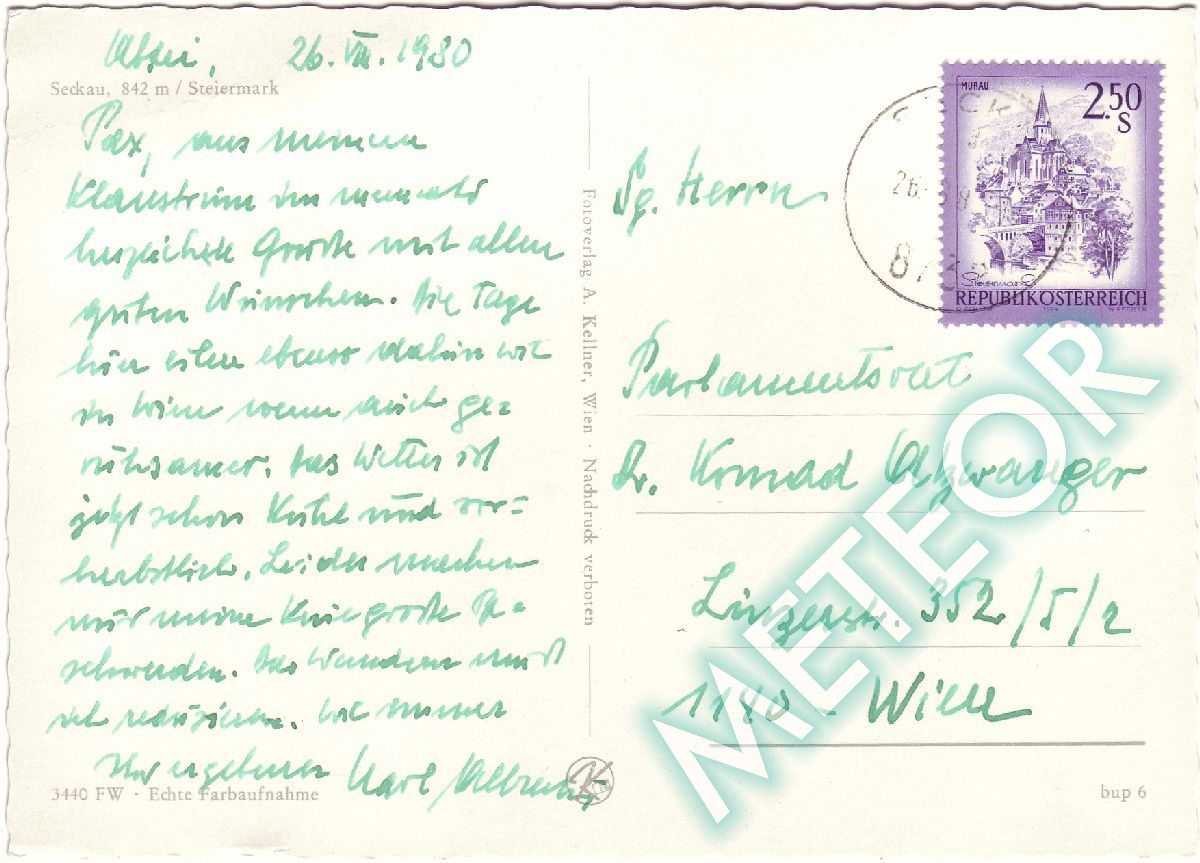 Abtei, 26. VIII. 1980
Seckau, 842 m / Steiermark
Pax, aus meinem
Klaustrum ein
herzlichste Grüße mit allen
guten Wünschen. Die Tage
hier eilen ebenso dahin wie
in Wien wenn auch ge=
ruhsamer. Das Wetter ist
jetzt schon kühl und vor=
herbstlich. Leider machen
mir meine Knie große Be=
schwerden. Das Wandern muß
ich reduzieren. Wie immer
Ihr ergebener Karl Albrecht
3440 FW · Echte Farbaufnahme
Fotoverlag A. Kellner, Wien · Nachdruck verboten
MURAU
2.50
S
Steiermark
REPUBLIK ÖSTERREICH
26.
Sg. Herrn
Parlamentsrat
Dr. Konrad Atzwanger
Linzerstr. 352/5/2
1140 - Wien
bup 6
METEOR